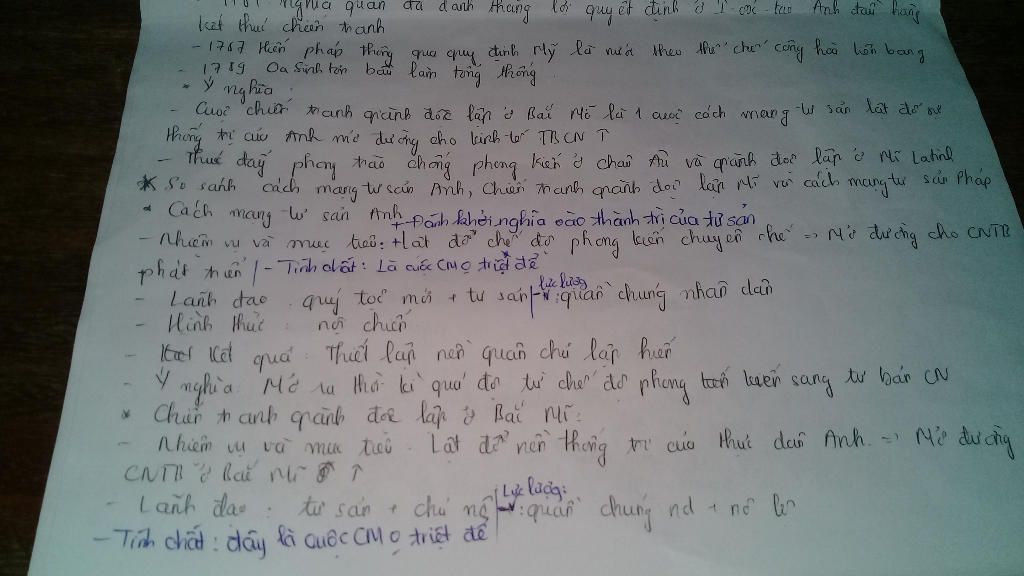 nghĩa quân đã dành thắng lợi quyết định ở I-oóc-tao Anh đầu hàng
Kết thúc chiến tranh
- 1787 Hiến pháp thông qua quy định Mỹ là nước theo thể chế cộng hoà liên bang
- 1789 Oa Sinh tơn bầu làm tổng thống
* Ý nghĩa:
- Cuộc chiến tranh giành độc lập ở Bắc Mĩ là 1 cuộc cách mạng tư sản lật đổ sự
thống trị của Anh mở đường cho kinh tế TBCN ↑
- Thúc đẩy phong trào chống phong kiến ở châu Âu và giành độc lập ở Mĩ Latinh
* So sánh cách mạng tư sản Anh, Chiến tranh giành độc lập Mĩ với cách mạng tư sản Pháp
* Cách mạng tư sản Anh
+ Đánh khởi nghĩa vào thành trì của tư sản
- Nhiệm vụ và mục tiêu: + Lật đổ chế độ phong kiến chuyên chế => Mở đường cho CNTB
phát triển | - Tính chất: Là cuộc CM ko triệt để
- Lãnh đạo: quý tộc mới + tư sản | - lực lượng: quần chúng nhân dân
- Hình thức: nội chiến
- Kết quả: Thiết lập nền quân chủ lập hiến
- Ý nghĩa: Mở ra thời kì quá độ từ chế độ phong kiến sang tư bản CN
* Chiến tranh giành độc lập ở Bắc Mĩ:
- Nhiệm vụ và mục tiêu: Lật đổ nền thống trị của thực dân Anh => Mở đường
CNTB ở Bắc Mĩ ↑
- Lãnh đạo: tư sản + chủ nô | - Lực lượng: quần chúng nd + nô lệ
- Tính chất: đây là cuộc CM ko triệt để